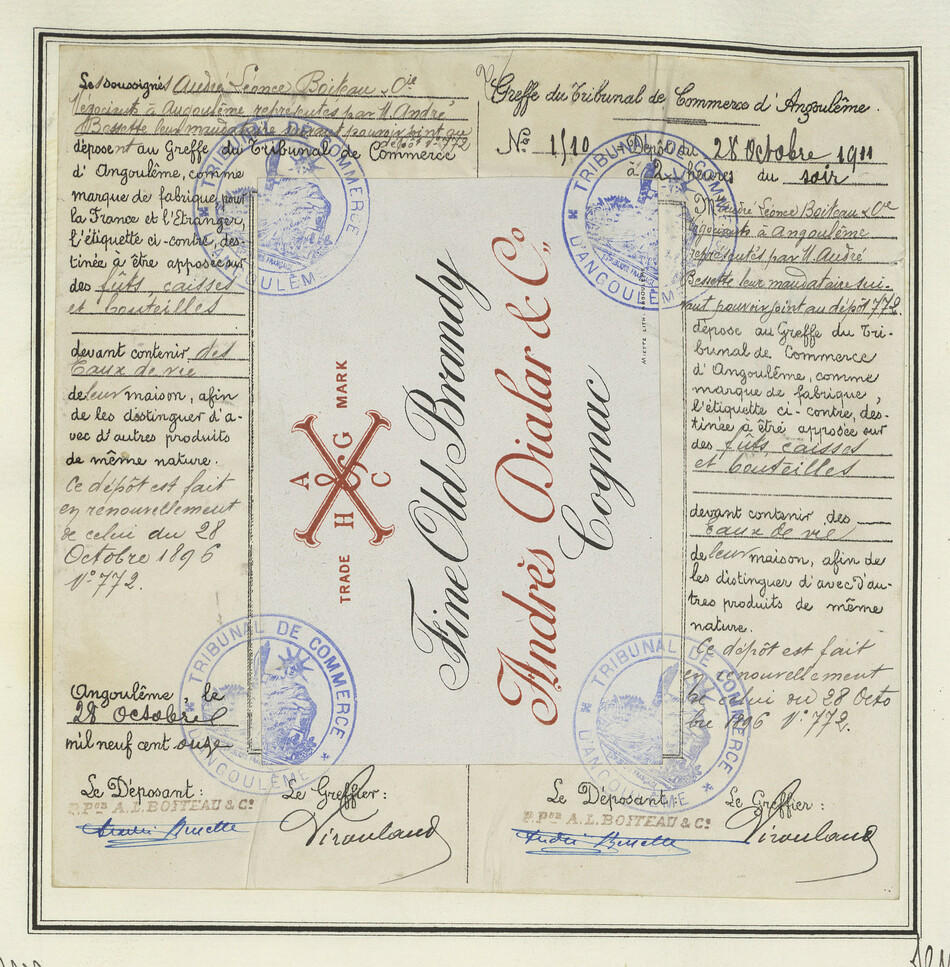 Les soussignés André Léonce Boiteau & Cie
Négociants à Angoulême représentés par M. André
Bessette leur mandataire suivant pouvoir joint au
dépôt n° 772
déposent au Greffe du Tribunal de Commerce
d'Angoulême, comme
marque de fabrique pour
la France et l'Etranger,
l'étiquette ci-contre, des-
tinée à être apposée sur
des fûts, caisses
et bouteilles
devant contenir des
Eaux de vie
de leur maison, afin
de les distinguer d'a-
vec d'autres produits
de même nature.
Ce dépôt est fait
en renouvellement
de celui du 28
Octobre 1896
N° 772.
Angoulême, le
28 Octobre
mil neuf cent onze
Le Déposant:
P. Pon A. L. BOITEAU & Co
André Bessette
Le Greffier:
Virouland
TRADE MARK
A
O
G
C
H
Fine Old Brandy
Andrès Dialar & Co.
Cognac
Greffe du Tribunal de Commerce d'Angoulême.
No 1/10 Dépôt du 28 Octobre 1911
à 2 heures du soir
M André Léonce Boiteau & Cie
négociants à Angoulême
représentés par M. André
Bessette leur mandataire sui-
vant pouvoir joint au dépôt 772.
dépose au Greffe du Tri-
bunal de Commerce
d'Angoulême, comme
marque de fabrique,
l'étiquette ci-contre, des-
tinée à être apposée sur
des fûts, caisses
et bouteilles
devant contenir des
Eaux de vie
de leur maison, afin de
les distinguer d'avec d'au-
tres produits de même
nature.
Ce dépôt est fait
en renouvellement
de celui du 28 Octo
bre 1896 N° 772.
Le Déposant:
P. Pon A. L. BOITEAU & Co
André Bessette
Le Greffier:
Virouland
TRIBUNAL DE COMMERCE
D'ANGOULÊME
TRIBUNAL DE COMMERCE
D'ANGOULÊME
TRIBUNAL DE COMMERCE
D'ANGOULÊME
TRIBUNAL DE COMMERCE
D'ANGOULÊME